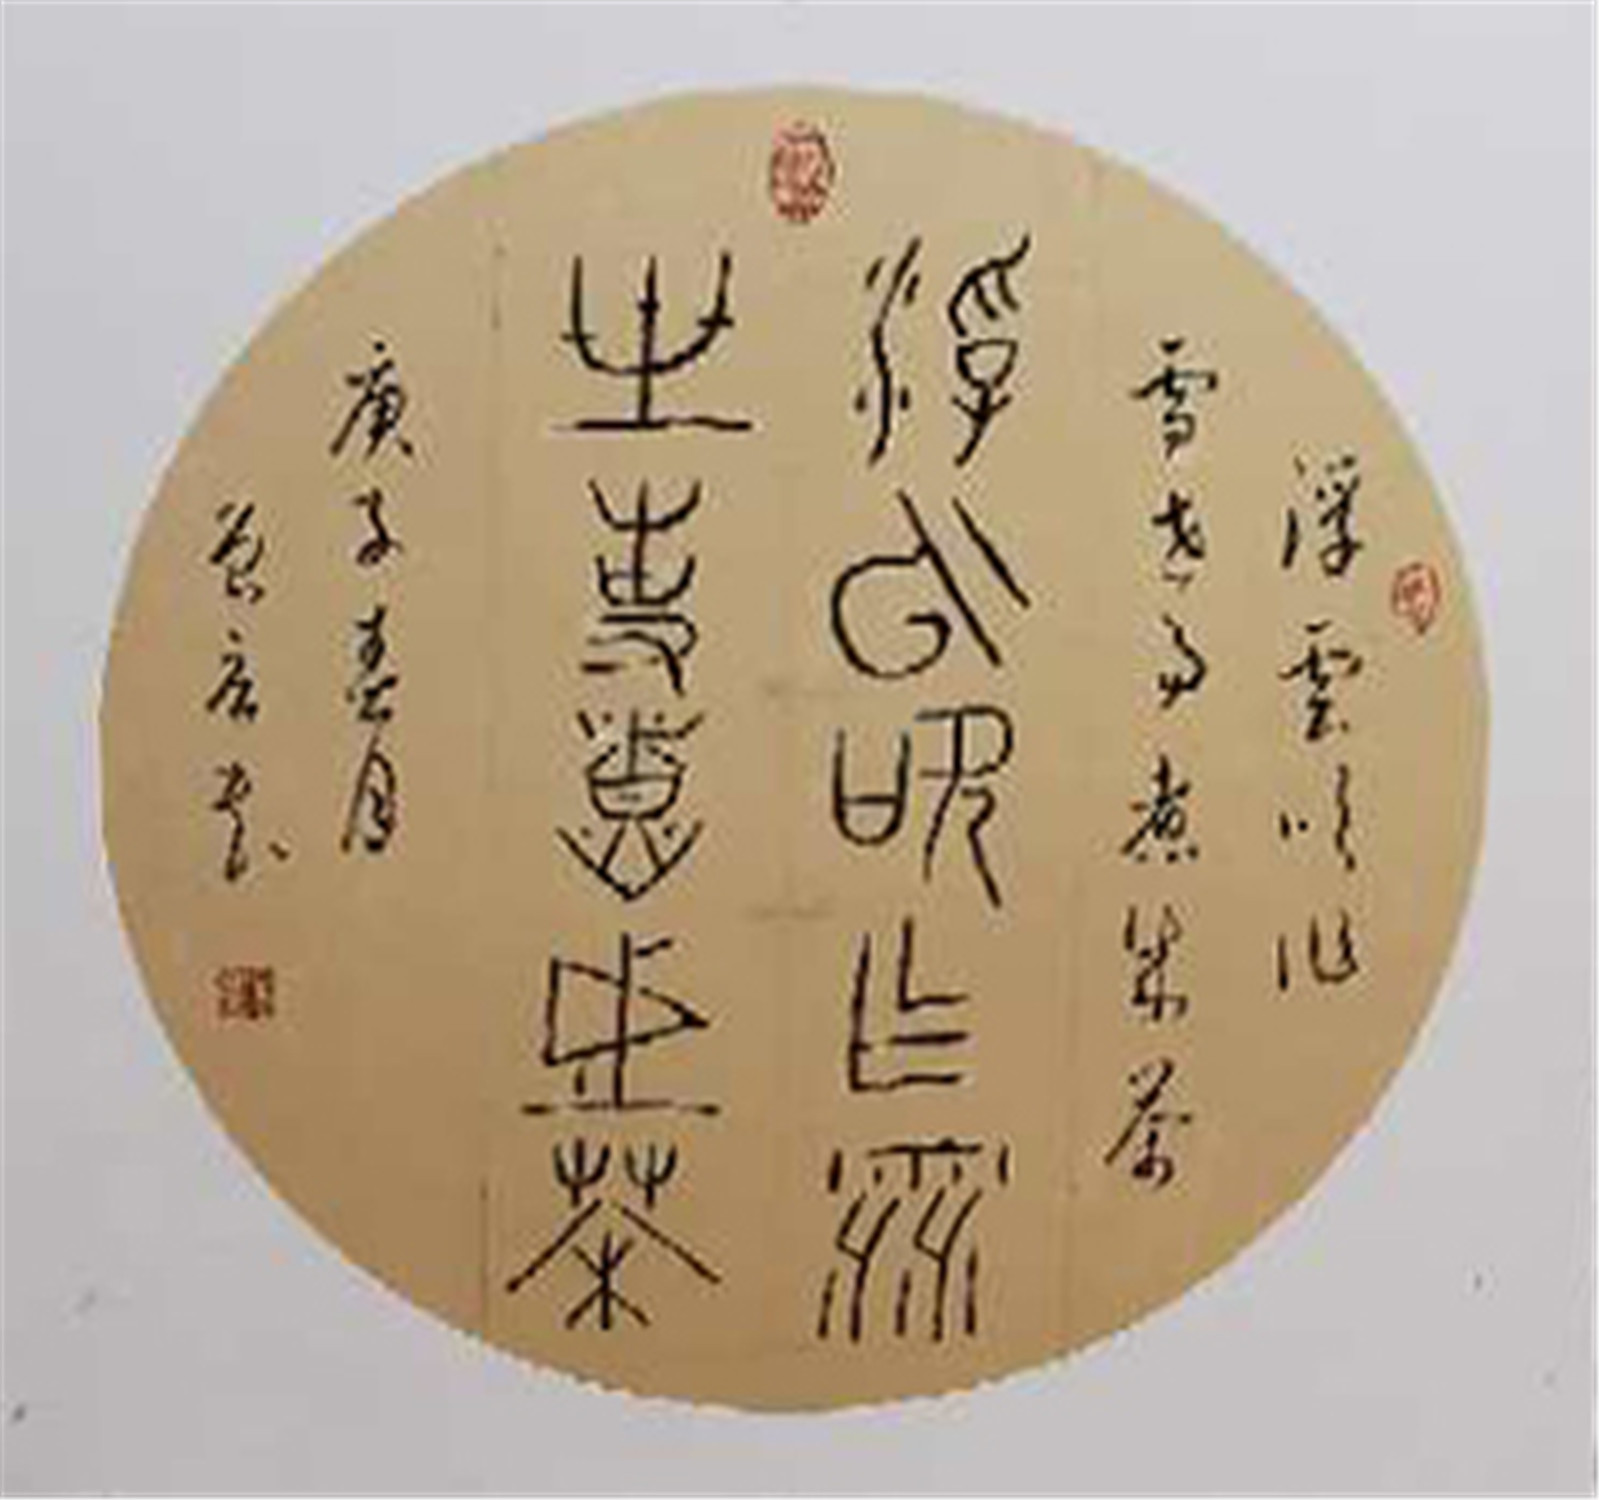 浮雲吹作
雪世味煮成茶
浮云吹作雪
世味煮成茶
庚子春月